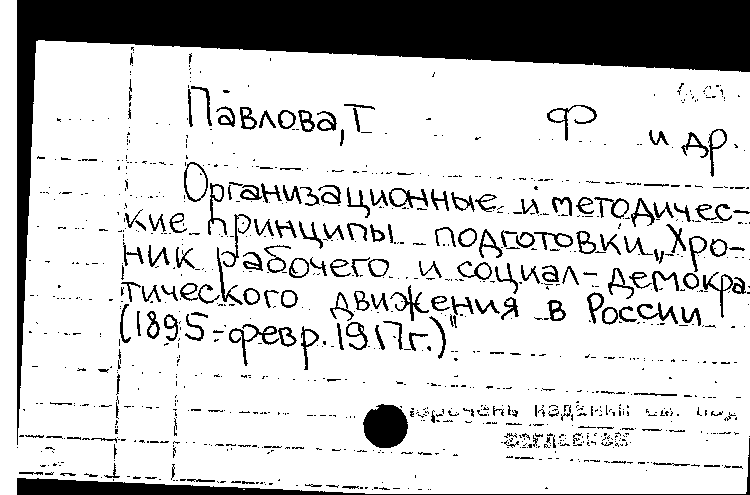 Павлова, Т Ф и др.
Организационные и методичес-
кие принципы подготовки „Хро-
ник рабочего и социал-демокра-
тического движения в России
(1895-февр. 1917г.)"
перечень изданий см. под
заглавием